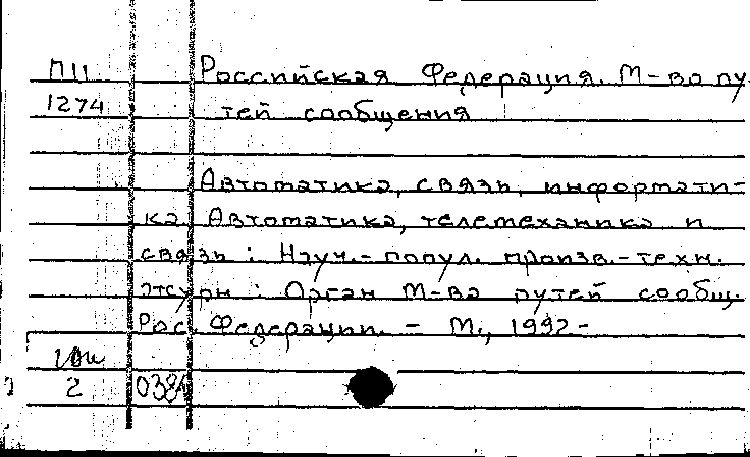 П11 Российская Федерация. М-во пу
1274 тей сообщения
Автоматика, связь, информати-
ка. Автоматика, телемеханика и
связь : Науч.-попул. произв.-техн.
журн : Орган М-ва путей сообщ.
Рос. Федерации. - М., 1992-
2 038